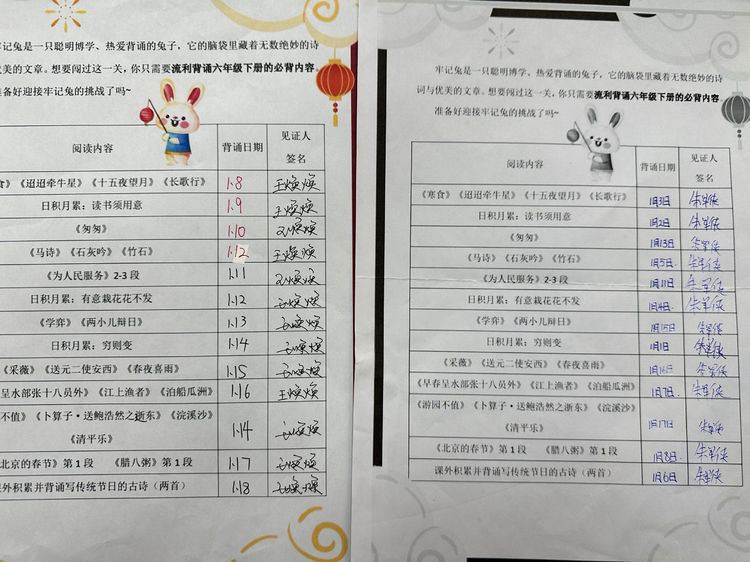 牢记兔是一只聪明博学、热爱背诵的兔子，它的脑袋里藏着无数绝妙的诗
优美的文章。想要闯过这一关，你只需要流利背诵六年级下册的必背内容。
准备好迎接牢记兔的挑战了吗~
阅读内容 背诵日期 见证人签名
食》《迢迢牵牛星》《十五夜望月》《长歌行》 1.8 王焕焕
日积月累：读书须用意 1.9 王焕焕
《匆匆》 1.10
《马诗》《石灰吟》《竹石》 1.12 王焕焕
《为人民服务》2-3 段 1.11
日积月累：有意栽花花不发 1.12
《学弈》《两小儿辩日》 1.13
日积月累：穷则变 1.14
《采薇》《送元二使安西》《春夜喜雨》 1.15
呈水部张十八员外》《江上渔者》《泊船瓜洲》 1.16 王焕焕
不值》《卜算子·送鲍浩然之浙东》《浣溪沙》
《清平乐》 1.14
北京的春节》第 1 段 《腊八粥》第 1 段 1.17
课外积累并背诵写传统节日的古诗（两首） 1.18
牢记兔是一只聪明博学、热爱背诵的兔子，它的脑袋里藏着无数绝妙的诗
词与优美的文章。想要闯过这一关，你只需要流利背诵六年级下册的必背内容
准备好迎接牢记兔的挑战了吗~
阅读内容 背诵日期 见证人签名
《寒食》《迢迢牵牛星》《十五夜望月》《长歌行》 1月3日
日积月累：读书须用意 1月2日
《匆匆》 1月13日
《马诗》《石灰吟》《竹石》 1月5日
《为人民服务》2-3 段 1月11日
日积月累：有意栽花花不发 1月4日
《学弈》《两小儿辩日》 1月15日
日积月累：穷则变 1月1日
《采薇》《送元二使安西》《春夜喜雨》 1月16日
《早春呈水部张十八员外》《江上渔者》《泊船瓜洲》 1月7日
《游园不值》《卜算子·送鲍浩然之浙东》《浣溪沙》
《清平乐》 1月17日
《北京的春节》第 1 段 《腊八粥》第 1 段 1月8日
课外积累并背诵写传统节日的古诗（两首） 1月6日